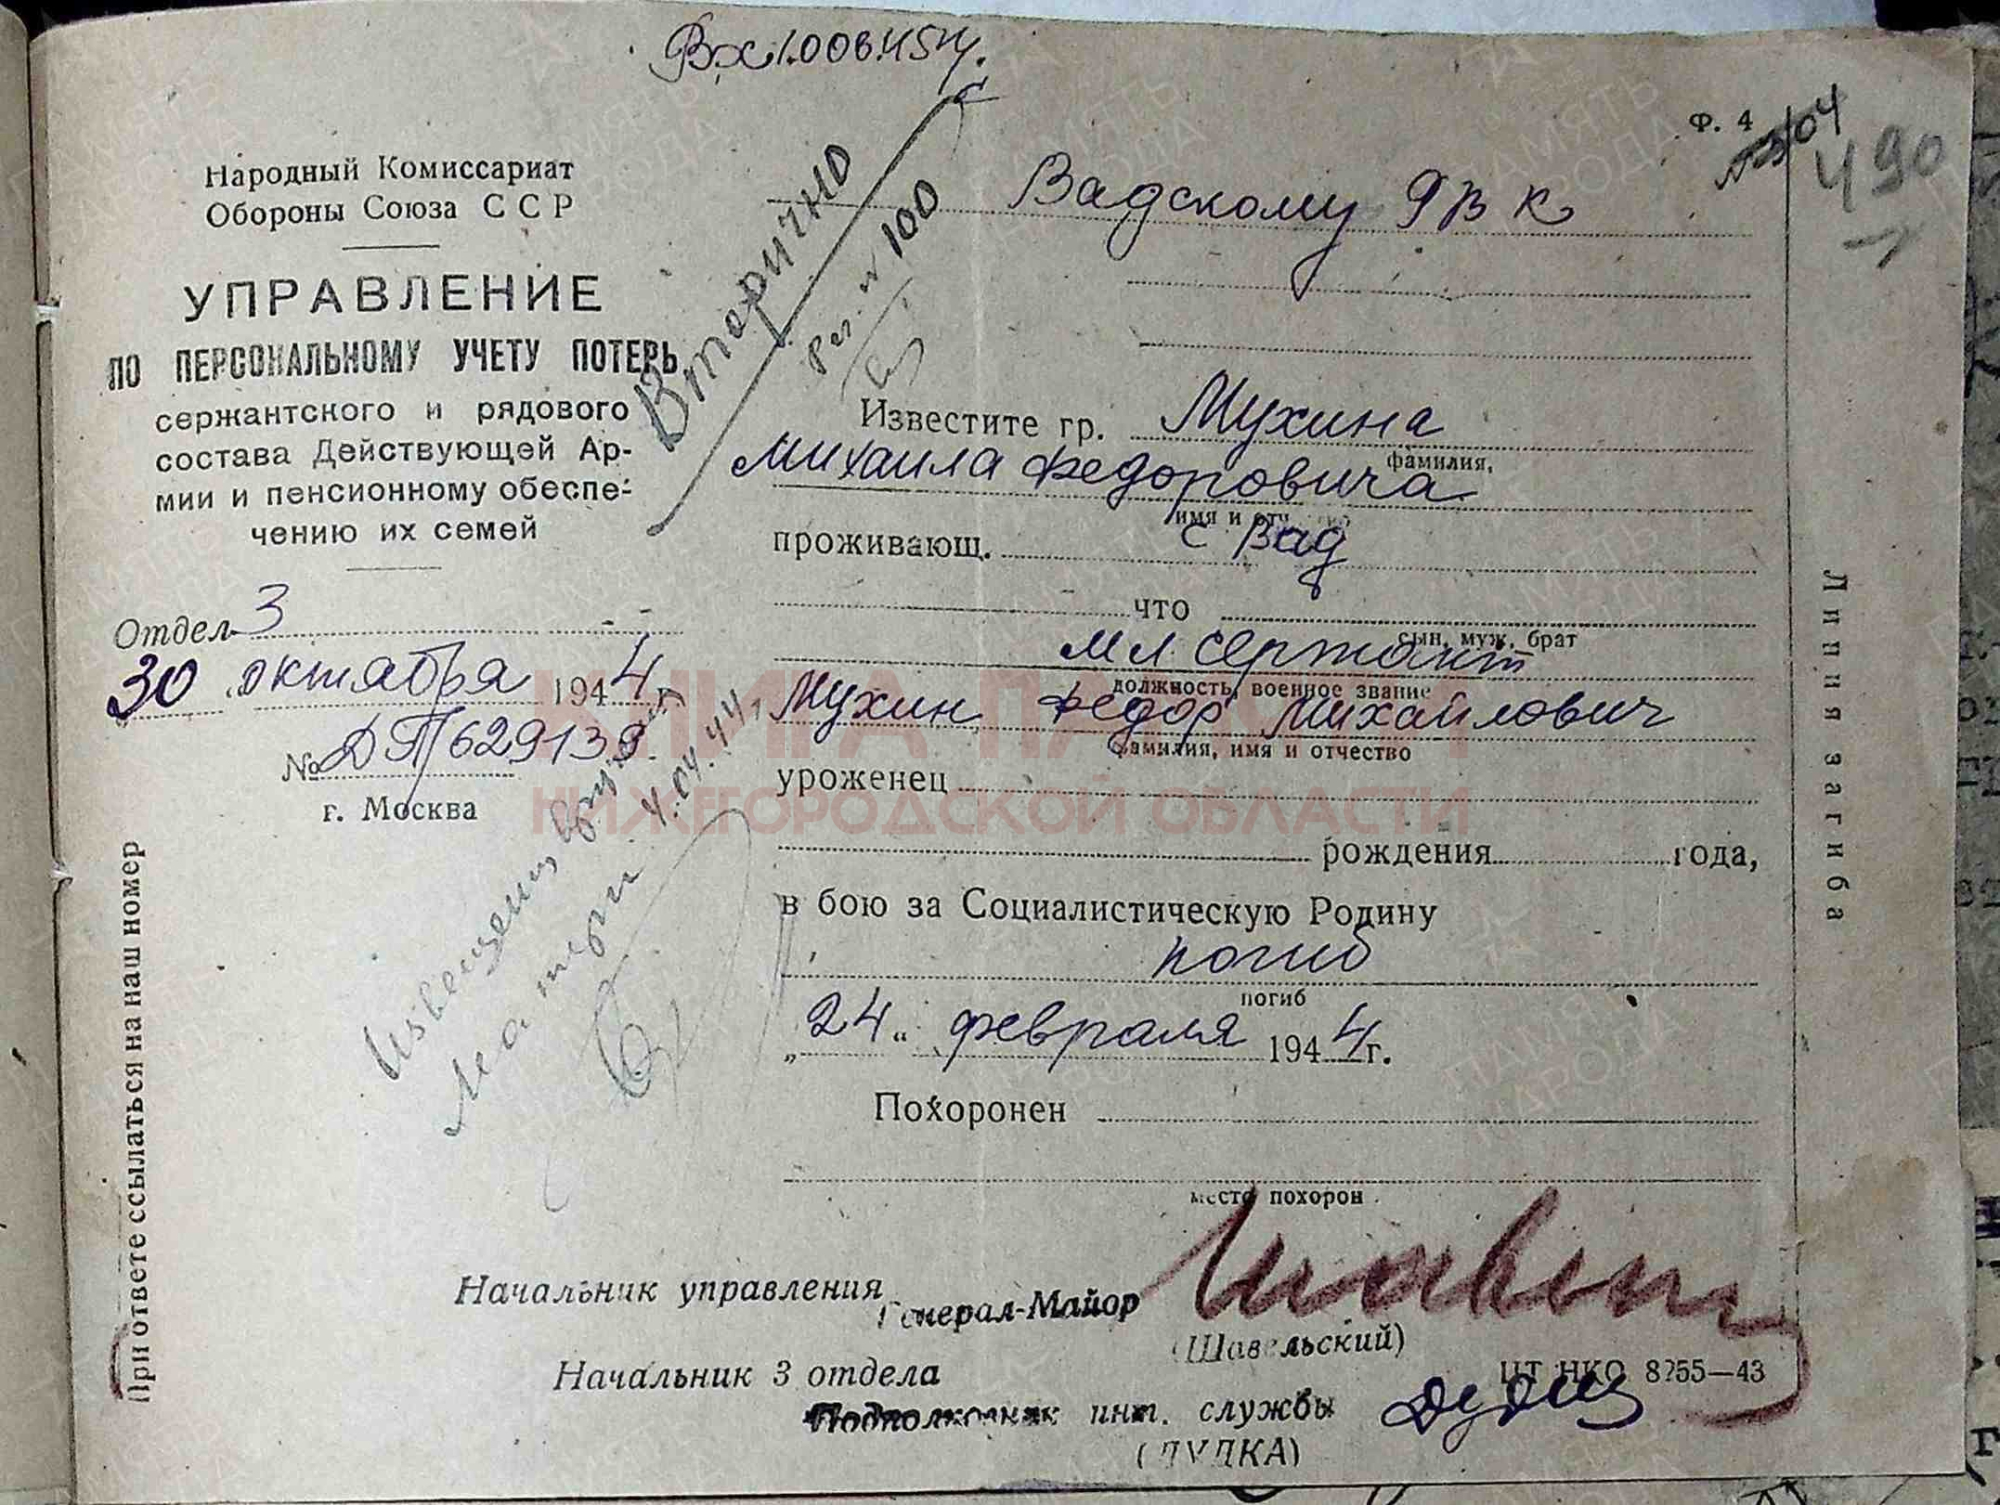 Ф. 4
490
Народный Комиссариат
Обороны Союза ССР
УПРАВЛЕНИЕ
ПО ПЕРСОНАЛЬНОМУ УЧЕТУ ПОТЕРЬ
сержантского и рядового
состава Действующей Ар-
мии и пенсионному обеспе-
чению их семей
Отдел 3
30 октября 1944 г.
№ ДП629139
г. Москва
При ответе ссылаться на наш номер
Вторично
Рег. № 100
Извещен вручен
Матери 4.04.44
Вадскому РВК
Известите гр. Мухина
фамилия,
Михаила Федоровича
имя и отч
проживающ. с Вад
что
сын, муж, брат
мл сержант
должность, военное звание
Мухин Федор Михайлович
фамилия, имя и отчество
уроженец
рождения года,
в бою за Социалистическую Родину
погиб
погиб
„24“ февраля 1944 г.
Похоронен
место похорон
Начальник управления
Генерал-Майор
(Шавельский)
Начальник 3 отдела
Подполковник инт. службы
(ДУДКА)
ЦТ НКО 8255—43
Линия загиба
КНИГА ПАМЯТИ
НИЖЕГОРОДСКОЙ ОБЛАСТИ
ПАМЯТЬ
НАРОДА